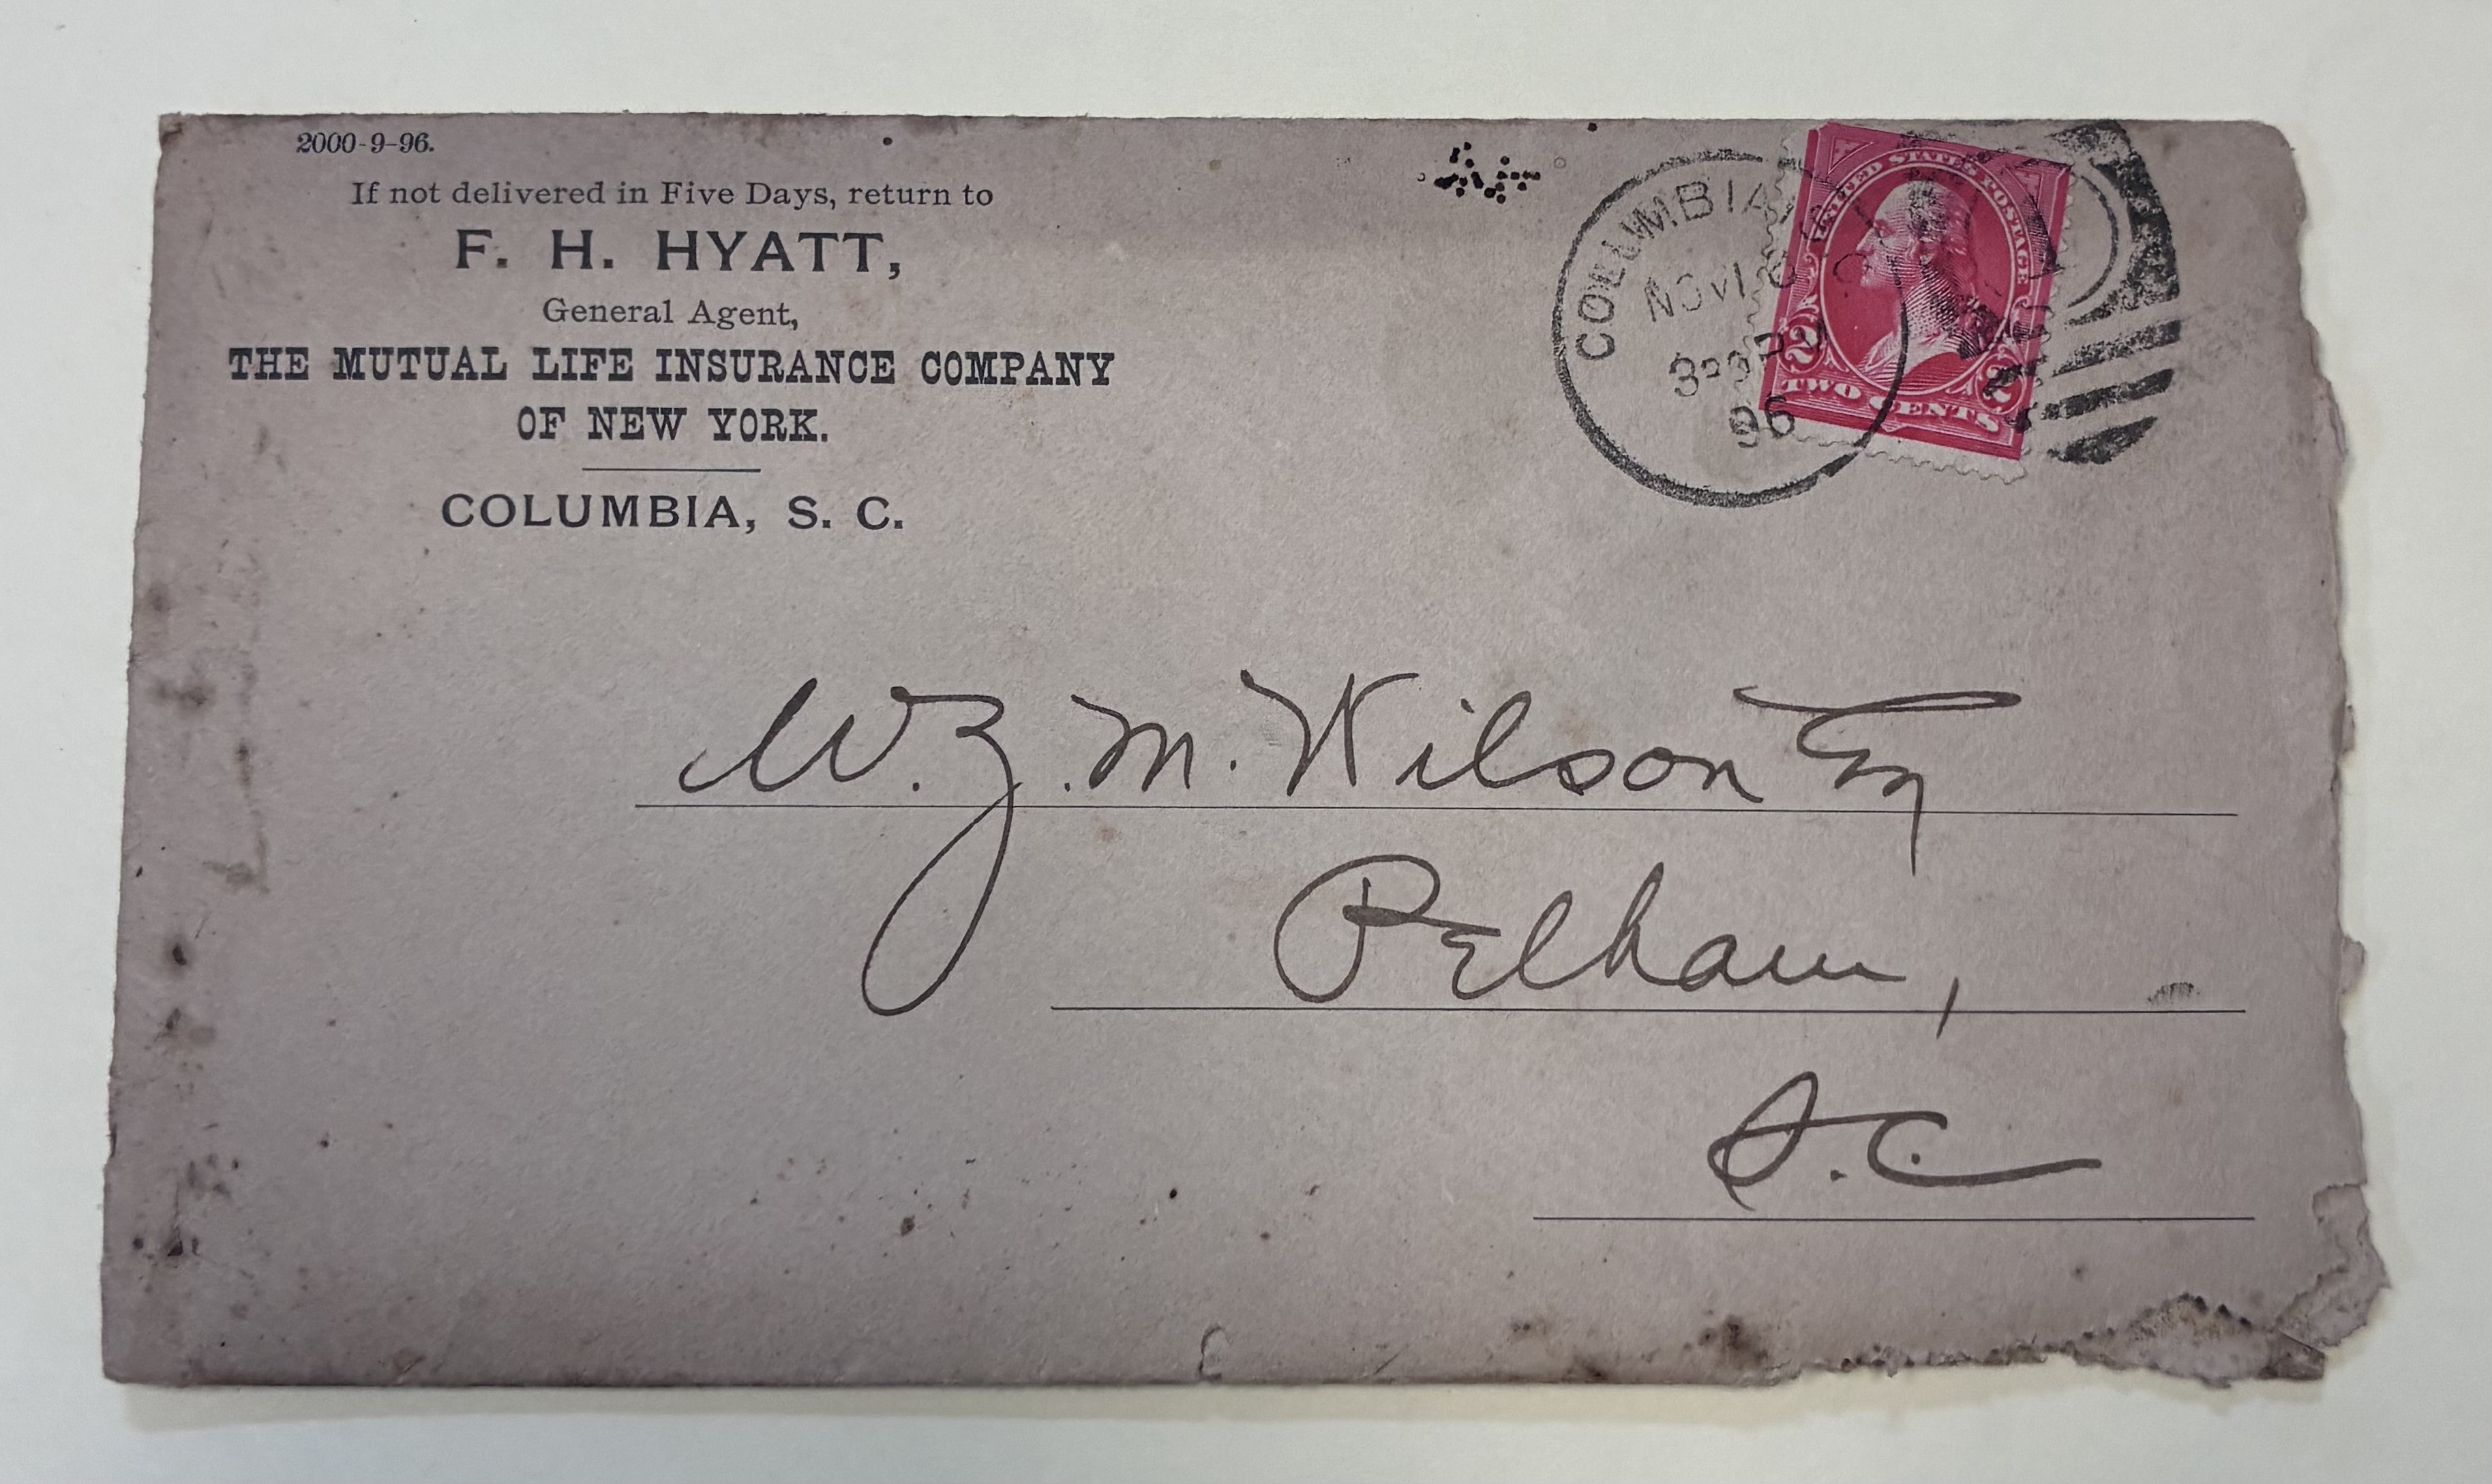 2000-9-96.
If not delivered in Five Days, return to
F. H. HYATT,
General Agent,
THE MUTUAL LIFE INSURANCE COMPANY
OF NEW YORK.
COLUMBIA, S. C.
COLUMBIA
NOV 16
3 PM
96
UNITED STATES POSTAGE
2 2
TWO CENTS
W. Z. M. Wilson Esq
Pelham,
S.C.